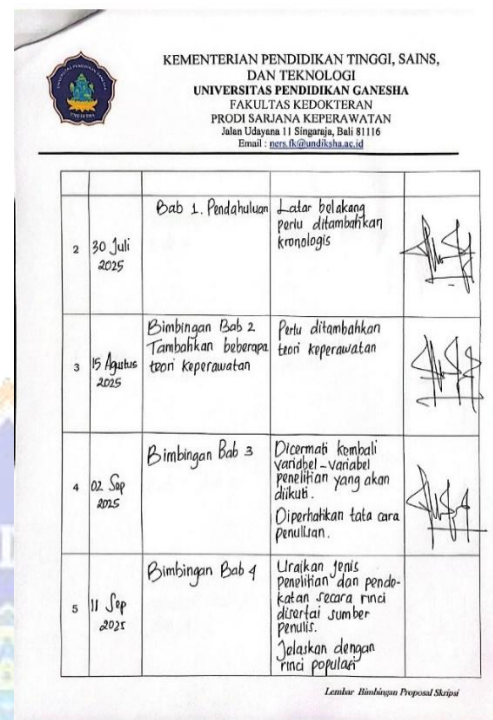 KEMENTERIAN PENDIDIKAN TINGGI, SAINS,
DAN TEKNOLOGI
UNIVERSITAS PENDIDIKAN GANESHA
FAKULTAS KEDOKTERAN
PRODI SARJANA KEPERAWATAN
Jalan Udayana 11 Singaraja, Bali 81116
Email : ners.fk@undiksha.ac.id
2
30 Juli
2025
Bab 1. Pendahuluan
Latar belakang
perlu ditambahkan
kronologis
3
15 Agustus
2025
Bimbingan Bab 2
Tambahkan beberapa
teori keperawatan
Perlu ditambahkan
teori keperawatan
4
02 Sep
2025
Bimbingan Bab 3
Dicermati kembali
variabel-variabel
penelitian yang akan
diikuti.
Diperhatikan tata cara
penulisan.
5
11 Sep
2025
Bimbingan Bab 4
Uraikan jenis
penelitian dan pende-
katan secara rinci
disertai sumber
penulis.
Jelaskan dengan
rinci populasi
Lembar Bimbingan Proposal Skripsi